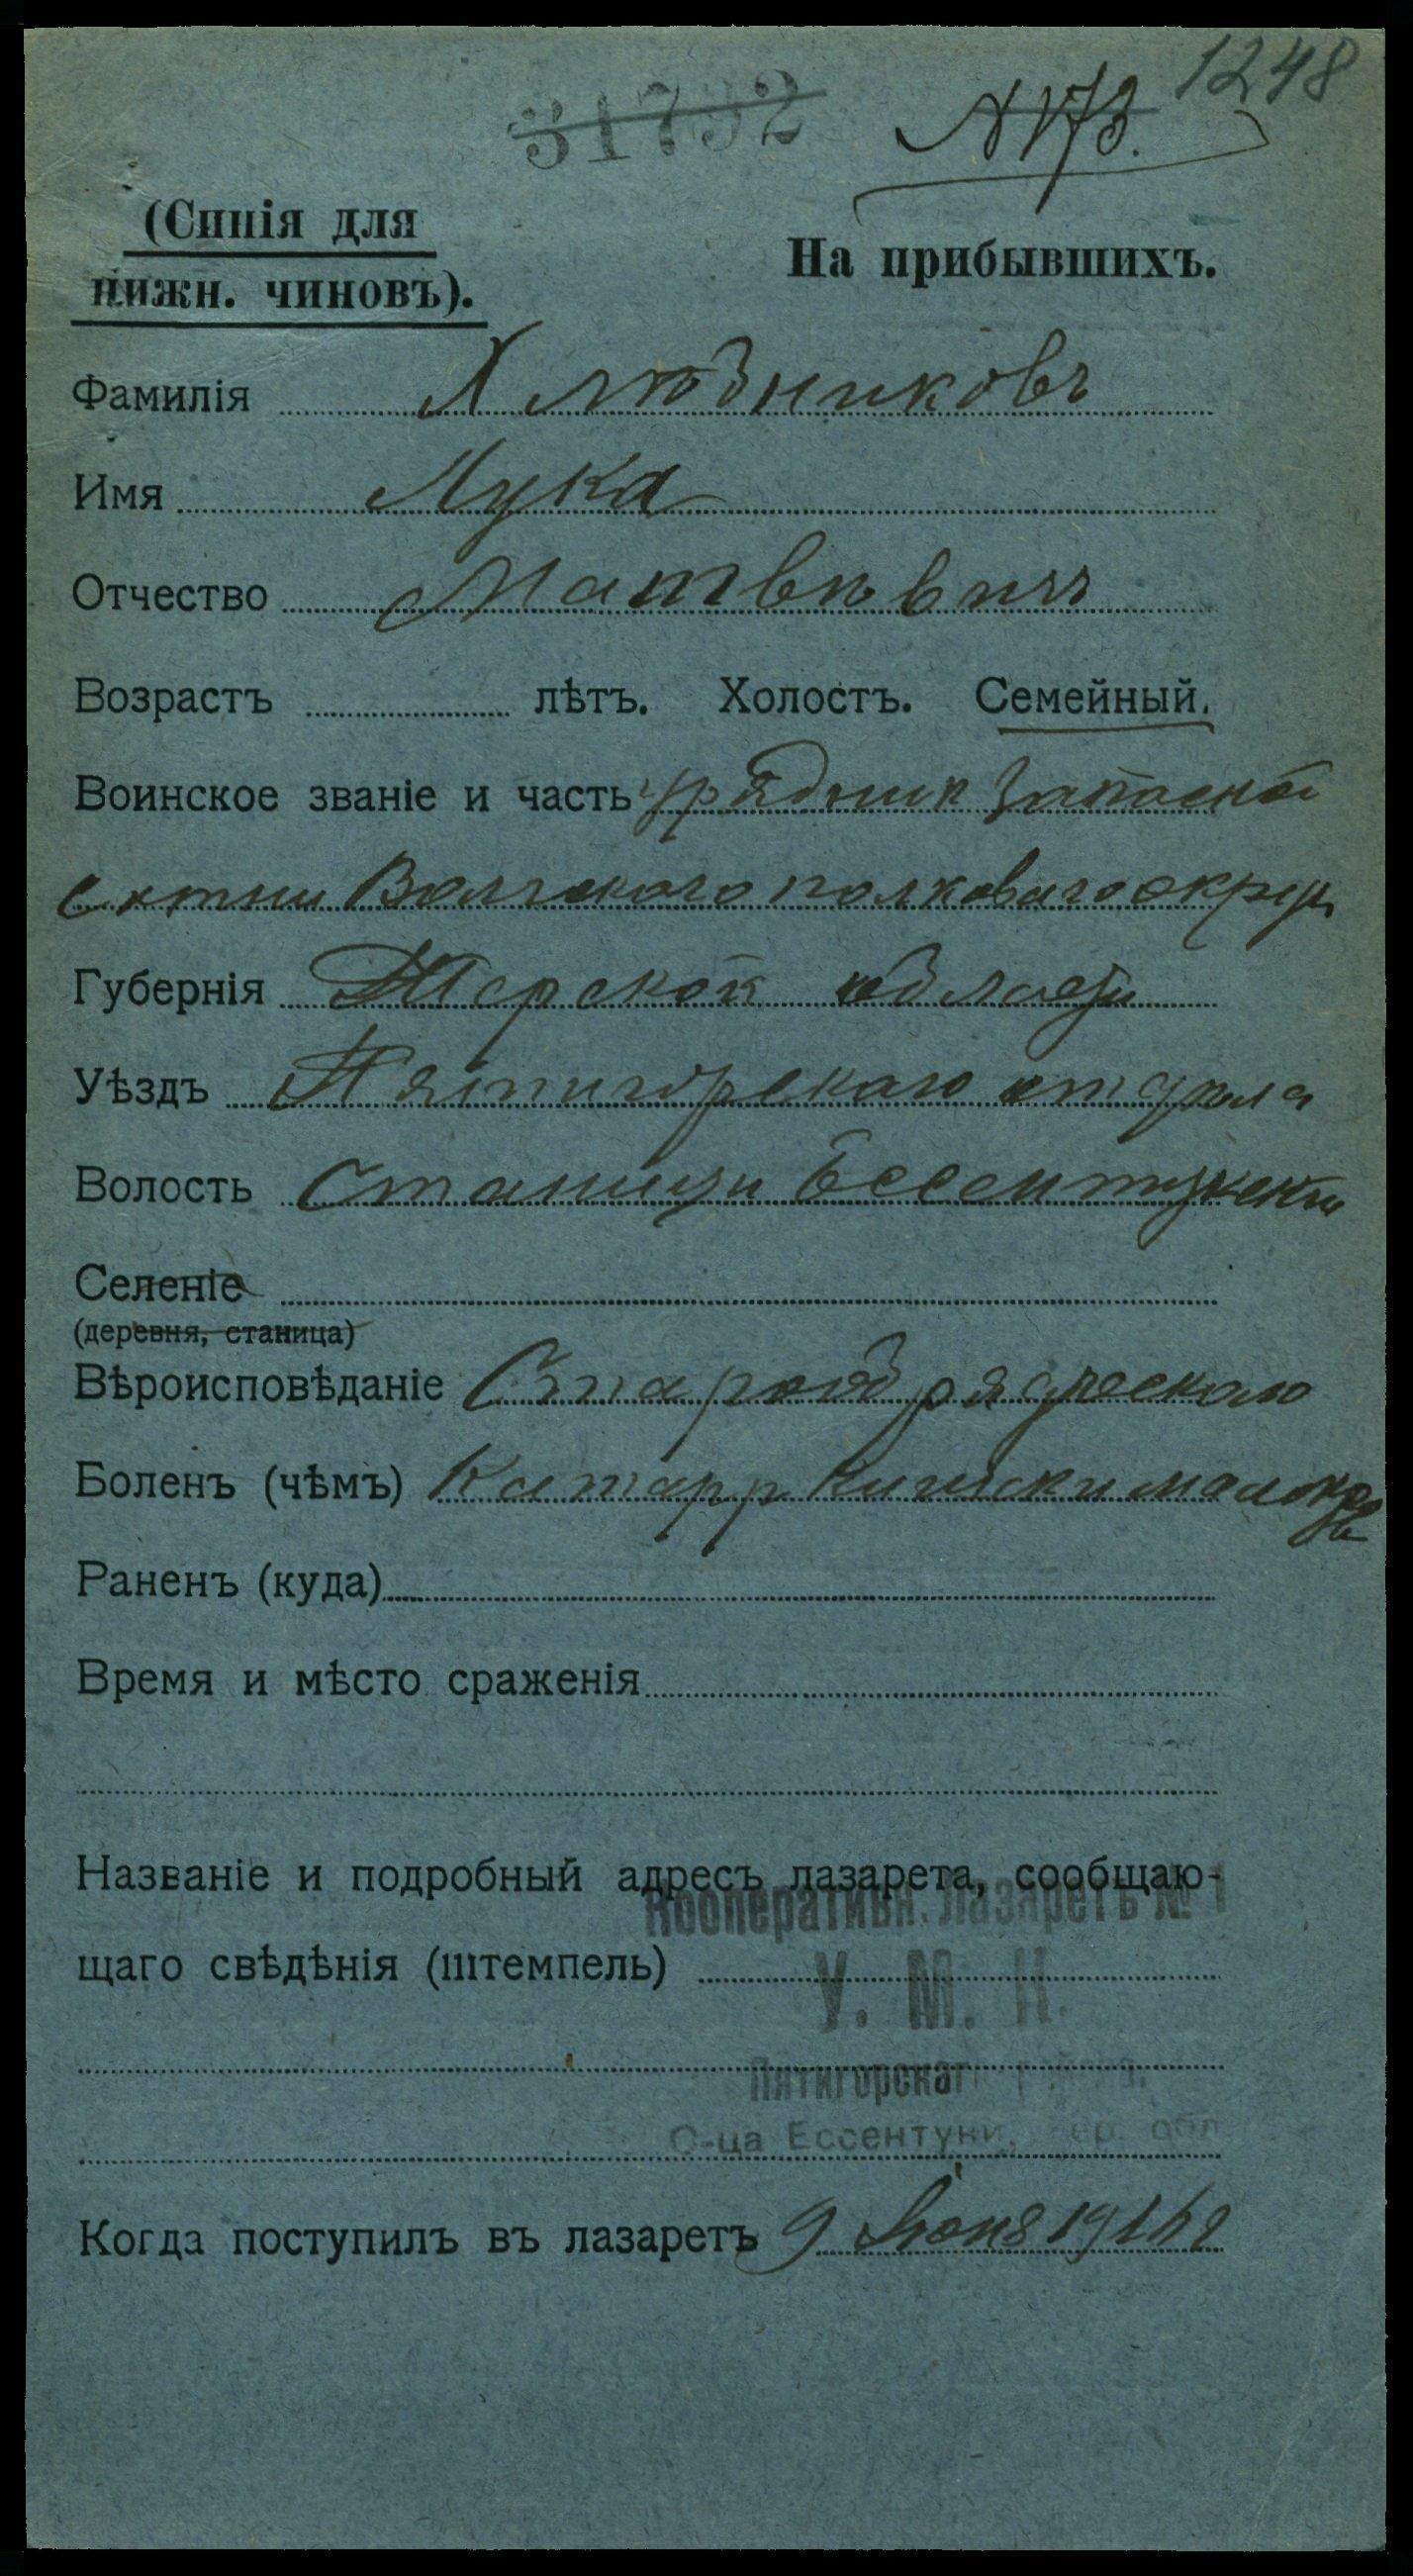 1248
31792
№ 173.
(Синія для
нижн. чиновъ).
На прибывшихъ.
Фамилія Хлюдниковъ
Имя Лука
Отчество Матвѣвичъ
Возрастъ лѣтъ. Холостъ. Семейный.
Воинское званіе и часть урядник Запасной
сотни Волгского полкового округа
Губернія Терской области
Уѣздъ Пятигорскаго отдѣла
Волость Станицы Ессентукской
Селеніе
(деревня, станица)
Вѣроисповѣданіе Старообрядческаго
Боленъ (чѣмъ) Катарр Кишски малокр
Раненъ (куда)
Время и мѣсто сраженія
Названіе и подробный адресъ лазарета, сообщаю-
Кооперативн. лазаретъ № 1
щаго свѣдѣнія (штемпель)
У. М. К.
Пятигорскаг
С-ца Ессентуки, Тер. обл
Когда поступилъ въ лазаретъ 9 Июня 1916 г